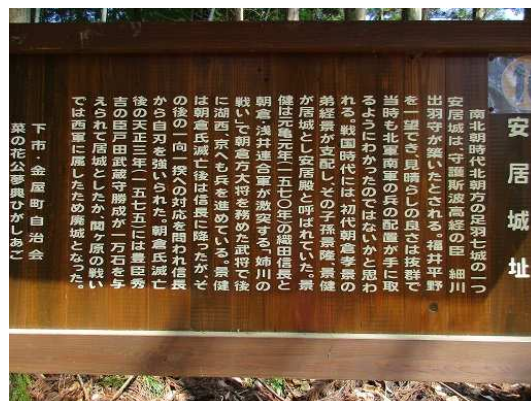 安居城址
南北朝時代北朝方の足羽七城の一つ
安居城は、守護斯波高経の臣 細川
出羽守が築いたとされる。福井平野
を一望でき見晴らしの良さは抜群で
当時も北軍南軍の兵の配置が手に取
るようにわかったのではないかと思わ
れる。戦国時代には、初代朝倉孝景の
弟経景が支配し、その子孫景隆、景健
が居城とし安居殿と呼ばれていた。景
健は元亀元年(一五七〇年)の織田信長と
朝倉・浅井連合軍が激突する、姉川の
戦い、で朝倉方大将を務めた武将で後
に湖西、京へも兵を進めている。景健
は朝倉氏滅亡後は信長に降ったが、そ
の後の一向一揆への対応を問われ信長
から自刃を強いられた。朝倉氏滅亡
後の天正三年(一五七五)には豊臣秀
吉の臣戸田武蔵守勝成が一万石を与
えられて居城としたが、関ヶ原の戦い
では西軍に属したため廃城となった。
下市・金屋町自治会
菜の花公夢興ひがしあご